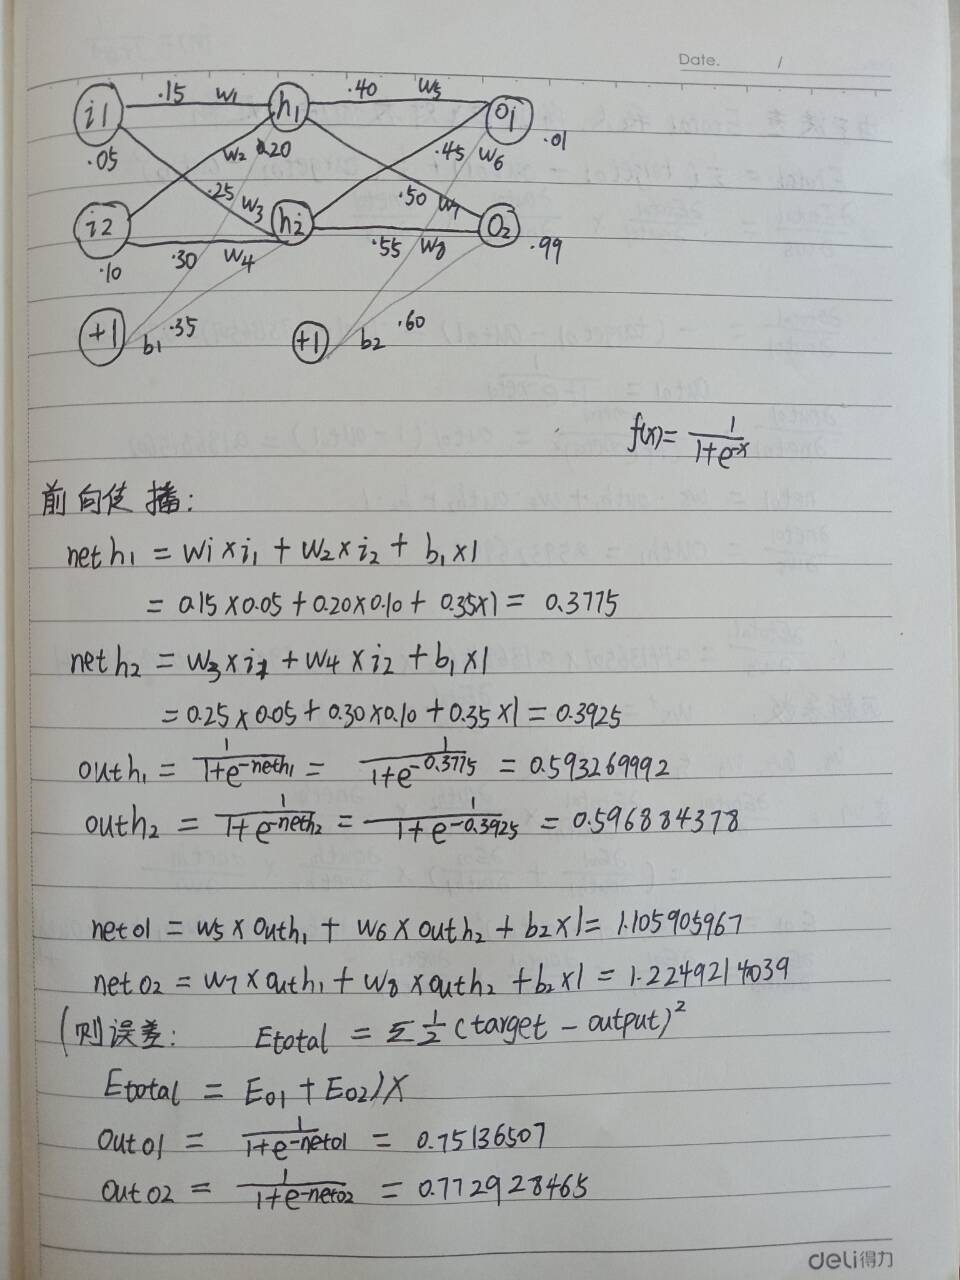 Date. /
i1 .15 w1 h1 .40 w5 o1
.05 w2 0.20 .45 w6 .01
.25 w3 .50 w7
i2 h2 o2
.10 .30 w4 .55 w8 .99
+1 b1 .35 +1 b2 .60
f(x) = 1/(1+e^-x)
前向传播:
net h1 = w1 × i1 + w2 × i2 + b1 × 1
= 0.15 × 0.05 + 0.20 × 0.10 + 0.35 × 1 = 0.3775
net h2 = w3 × i1 + w4 × i2 + b1 × 1
= 0.25 × 0.05 + 0.30 × 0.10 + 0.35 × 1 = 0.3925
outh1 = 1/(1+e^-neth1) = 1/(1+e^-0.3775) = 0.593269992
outh2 = 1/(1+e^-neth2) = 1/(1+e^-0.3925) = 0.596884378
neto1 = w5 × outh1 + w6 × outh2 + b2 × 1 = 1.105905967
neto2 = w7 × outh1 + w8 × outh2 + b2 × 1 = 1.2249214039
(则误差: Etotal = Σ ½ (target - output)²
Etotal = Eo1 + Eo2) ×
Outo1 = 1/(1+e^-neto1) = 0.75136507
Outo2 = 1/(1+e^-neto2) = 0.772928465
deli得力